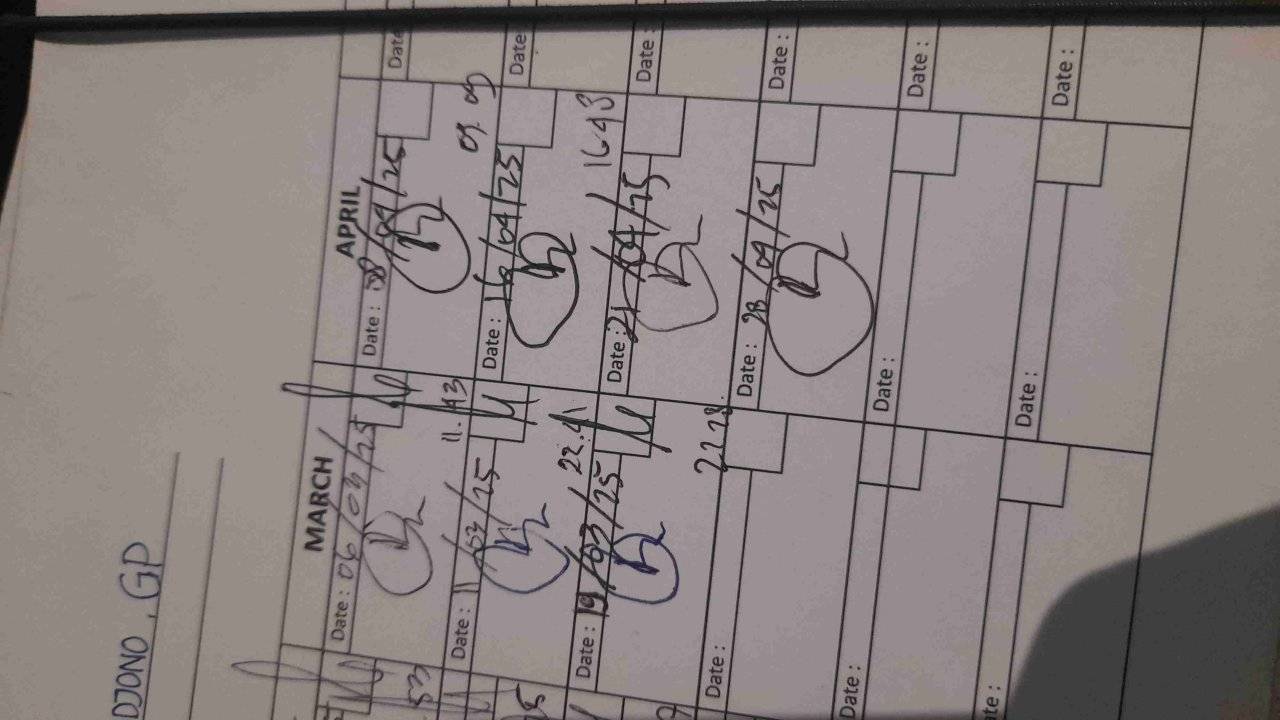 DJONO, GP
MARCH
Date : 06/03/25
11.43
Date : 11/03/25
22.41
Date : 19/03/25
22 28.
Date :
Date :
APRIL
Date : 08/04/25
09.09
Date : 16/04/25
1643
Date : 21/04/25
Date : 28/04/25
Date :
Date :
Date
Date
Date :
Date :
Date :
Date :